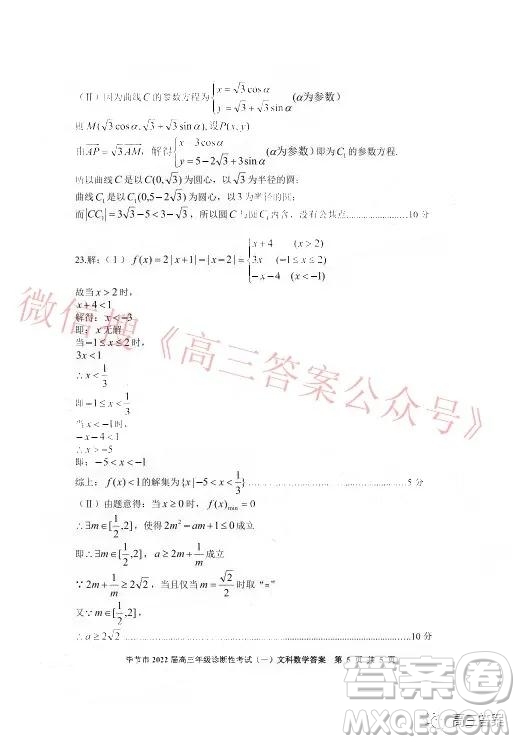 （Ⅱ）因为曲线 C 的参数方程为{x=√3cosα （α为参数）
y=√3+√3sinα
则 M(√3cosα,√3+√3sinα), 设P(x,y)
由AP=√3AM，解得{x=3cosα （α为参数）即为C₁的参数方程.
y=5-2√3+3sinα
所以曲线 C 是以 C(0,√3)为圆心，以√3为半径的圆；
曲线 C₁是以 C₁(0,5-2√3)为圆心，以3为半径的圆；
而|CC₁|=3√3-5<3-√3，所以圆C与圆C₁内含，没有公共点........................10分
23.解：（Ⅰ） f(x)=2|x+1|-|x-2|={x+4 (x>2)
3x (-1≤x≤2)
-x-4 (x<-1)
故当 x>2 时，
x+4<1
解得：x<-3
即：x无解
当-1≤x≤2时，
3x<1
x<1/3
即-1≤x<1/3
当 x<-1时，
-x-4<1
即：-5<x<-1
综上：f(x)<1的解集为{x|-5<x<1/3}........................5分
（Ⅱ）由题意得：当 x≥0 时，f(x)min=0
∴∃m∈[1/2,2]，使得 2m²-am+1≤0成立
即∴∃m∈[1/2,2]，a≥2m+1/m成立
∵2m+1/m≥2√2，当且仅当 m=√2/2 时取“=”
又∵m∈[1/2,2]，
∴a≥2√2........................10分
毕节市 2022 届高三年级诊断性考试（一）文科数学答案 第 5 页 共 5 页
微信搜《高三答案公众号》
高三答案
MXQE.COM